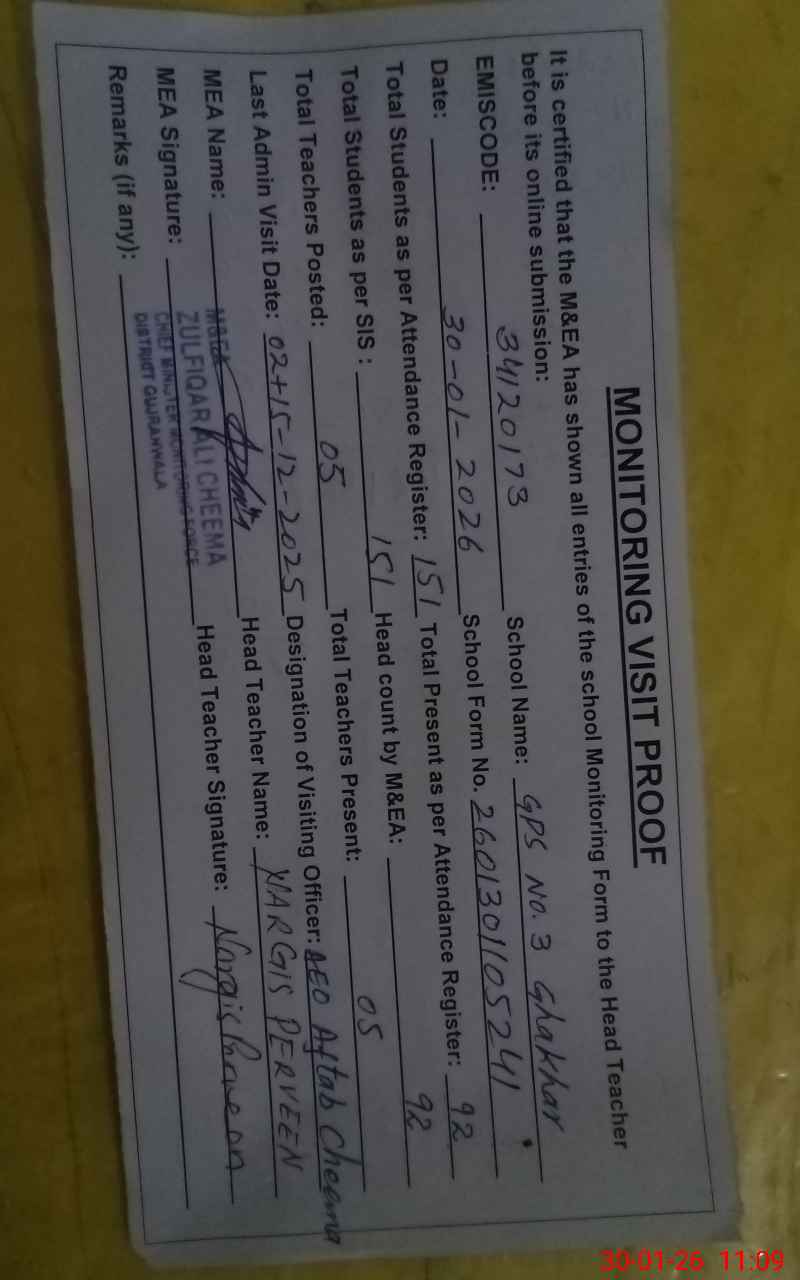 MONITORING VISIT PROOF
It is certified that the M&EA has shown all entries of the school Monitoring Form to the Head Teacher
before its online submission:
EMISCODE: 34120173 School Name: GPS No. 3 Ghakhar
Date: 30-01-2026 School Form No. 2601301105241
Total Students as per Attendance Register: 151 Total Present as per Attendance Register: 92
Total Students as per SIS : 151 Head count by M&EA: 92
Total Teachers Posted: 05 Total Teachers Present: 05
Last Admin Visit Date: 02+15-12-2025 Designation of Visiting Officer: AEO Aftab Cheema
MEA Name: Head Teacher Name: NARGIS PERVEEN
MEA Signature: Head Teacher Signature: Nargis Perveen
Remarks (if any):
M&EA
ZULFIQAR ALI CHEEMA
CHIEF MINISTER MONITORING FORCE
DISTRICT GUJRANWALA
30-01-26 11:09